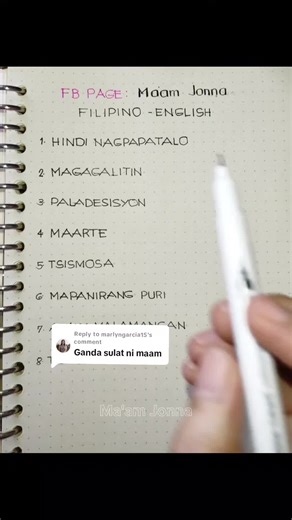 FB PAGE: Ma'am Jonna
FILIPINO - ENGLISH
1. HINDI NAGPAPATALO
2. MAGAGALITIN
3. PALADESISYON
4. MAARTE
5. TSISMOSA
6. MAPANIRANG PURI
7.
Reply to marlyngarcia15's
comment
Ganda sulat ni maam
8.
Ma'am Jonna